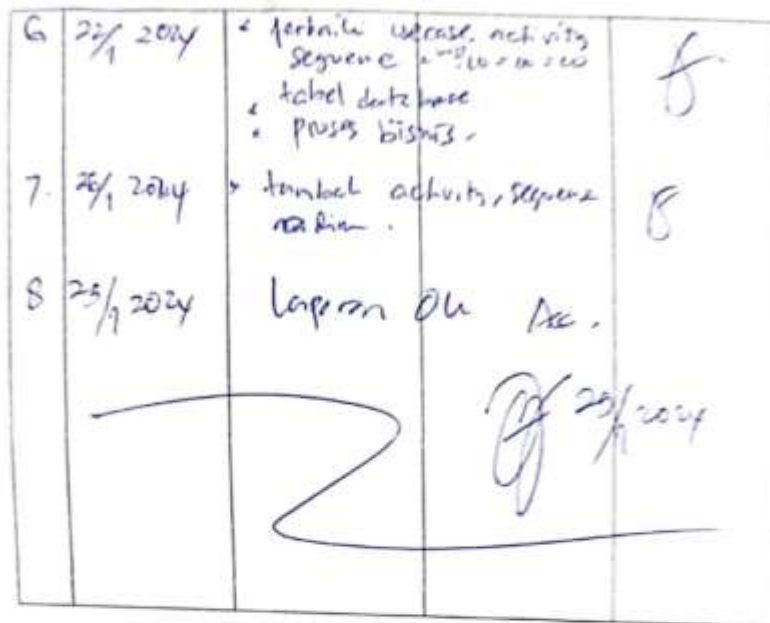 6 22/1 2024 perbaiki usecase, activity
sequence
tabel database
proses bisnis.
7. 2024 tambah activity, sequence
8 25/1 2024 Laporan Ok Acc.
25/1 2024